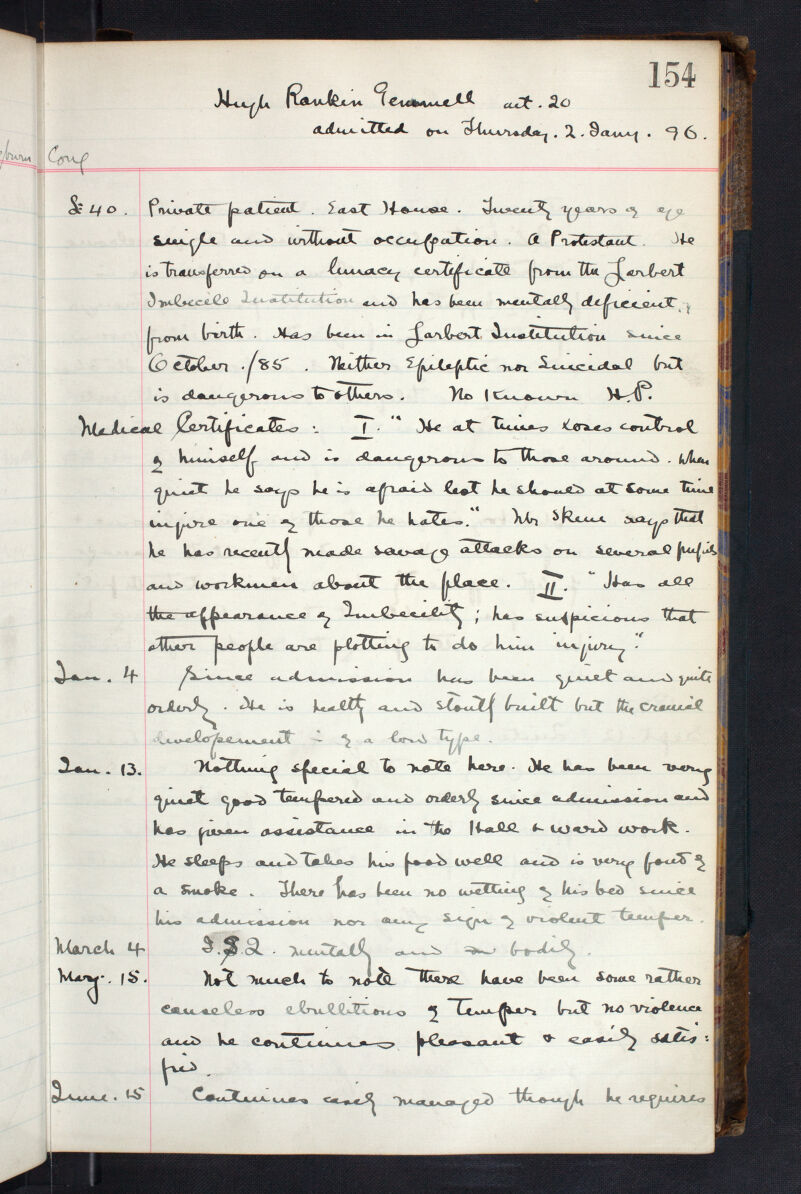 154
Hugh Rankin Gemmell aet. 20
admitted on Thursday. 2. Jany. 96.
Cong
£40. Private patient. East House. Twenty years of age
single and without occupation. A Protestant. He
is transferred on a lunacy certificate from the Larbert
Imbecile Institution and has been mentally deficient
from birth. Has been in Larbert Institution since
October /85. Neither Epileptic nor Suicidal but
is dangerous to others. No Known H.P.
Medical Certificates: I. "He at times loses control
of himself and is dangerous to those around. When
quiet he says he is afraid lest he should at some time
injure one of those he hates." Mr Skene says that
he has recently made savage attacks on several pupils
and workmen about the place. II. "Has all
the appearance of Imbecility; has suspicions that
other people are plotting to do him injury."
Jan. 4 Since admission has been quiet and quite
orderly. He is healthy and stoutly built but the cranial
developement is of a low type.
Jan. 13. Nothing special to note here. He has been very
quiet good tempered and orderly since admission and
has given assistance in the Hall & ward work.
He sleeps and takes his food well and is very fond of
a smoke. There has been no wetting of his bed since
his admission nor any sign of violent temper.
March 4 I.S.Q. mentally and bodily.
May. 15. Not much to note there have been some rather
causeless ebullitions of temper but no violence
and he continues pleasant & easily satis:
fied.
June. 15 Continues easily managed though he requires